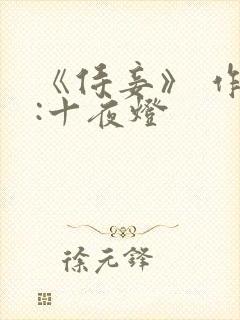 《侍妾》 作
:十夜燈
徐元鋒